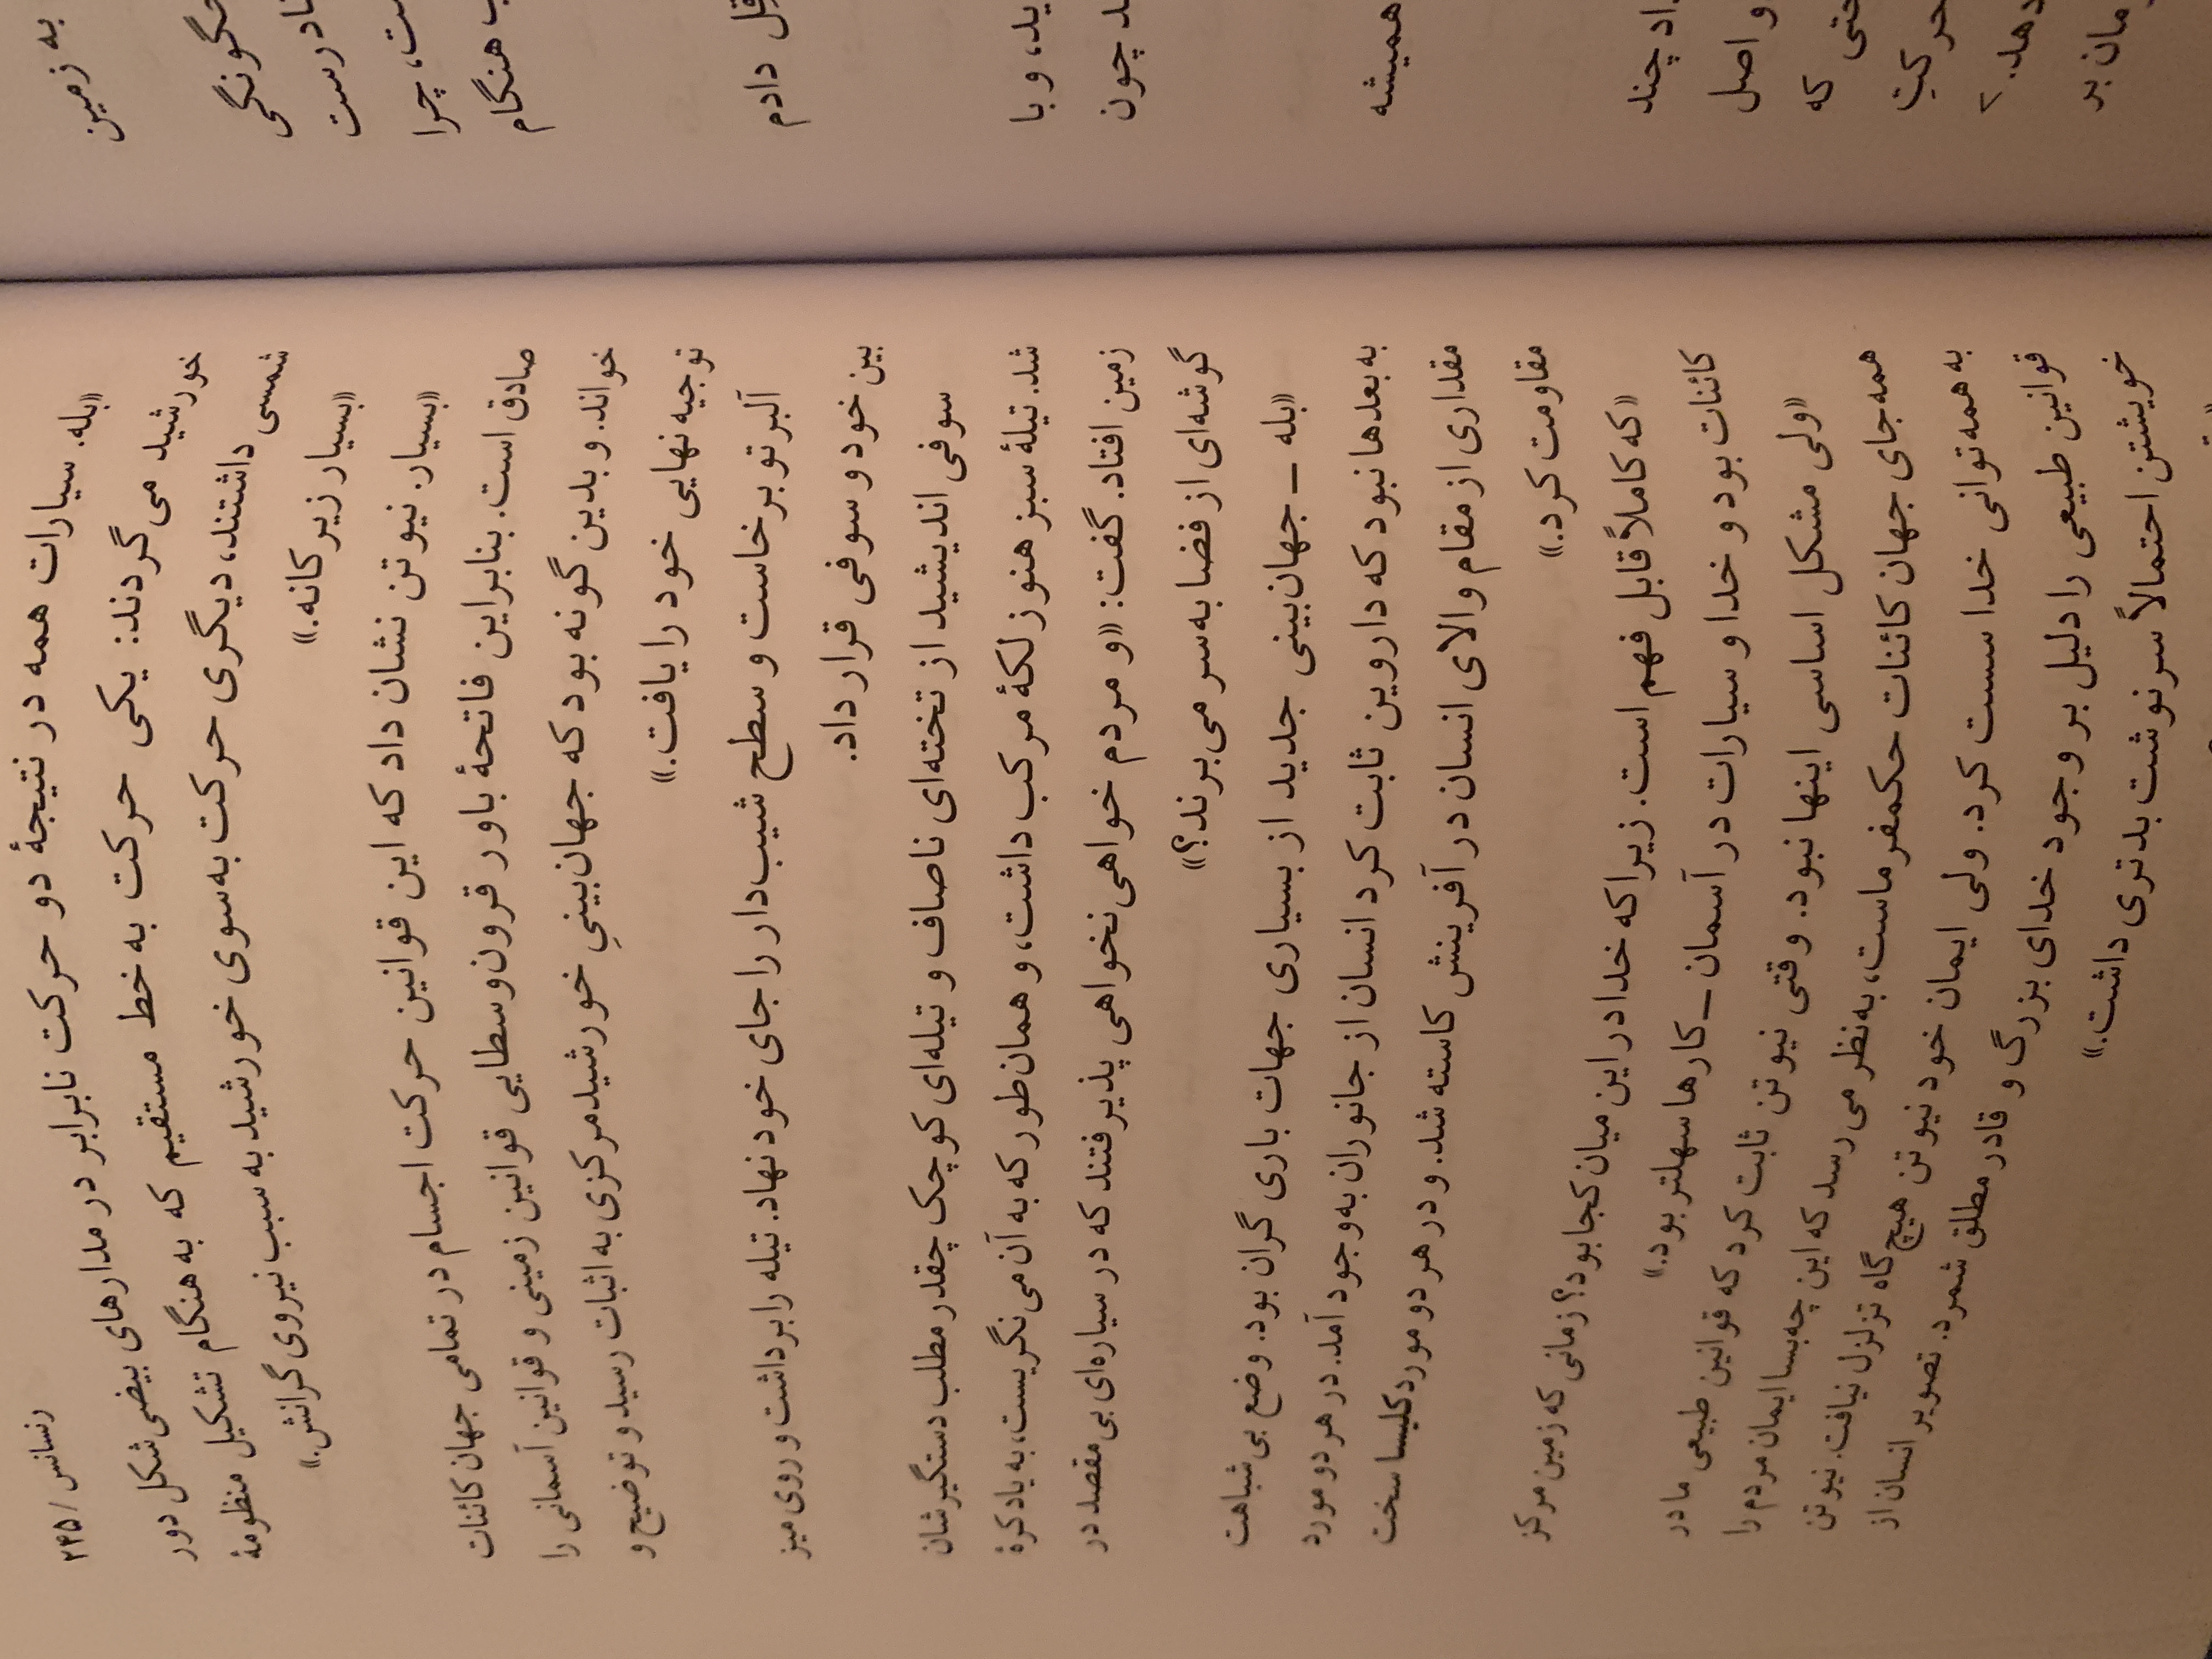 به زمین
چرا
هنگام
دادم
و با
چون
همیشه
چند
و اصل
که
حرکتِ
بر
رنسانس / ۲۴۵
«بله. سیارات همه در نتیجهٔ دو حرکت نابرابر در مدارهای بیضی‌شکل دور
خورشید می‌گردند: یکی حرکت به خط مستقیم که به هنگام تشکیل منظومهٔ
شمسی داشتند، دیگری حرکت به‌سوی خورشید به سبب نیروی گرانش.»
«بسیار زیرکانه.»
«بسیار. نیوتن نشان داد که این قوانین حرکت اجسام در تمامی جهان کائنات
صادق است. بنابراین فاتحهٔ باور قرون‌وسطایی قوانین زمینی و قوانین آسمانی را
خواند. و بدین گونه بود که جهان‌بینیِ خورشیدمرکزی به اثبات رسید و توضیح و
توجیه نهایی خود را یافت.»
آلبرتو برخاست و سطح شیب‌دار را جای خود نهاد. تیله را برداشت و روی میز
بین خود و سوفی قرار داد.
سوفی اندیشید از تخته‌ای ناصاف و تیله‌ای کوچک چقدر مطلب دستگیرشان
شد. تیلهٔ سبز هنوز لکهٔ مرکب داشت، و همان‌طور که به آن می‌نگریست، به یاد کرهٔ
زمین افتاد. گفت: «و مردم خواهی نخواهی پذیرفتند که در سیاره‌ای بی‌مقصد در
گوشه‌ای از فضا به‌سر می‌برند؟»
«بله ـ جهان‌بینی جدید از بسیاری جهات باری گران بود. وضع بی شباهت
به بعدها نبود که داروین ثابت کرد انسان از جانوران به‌وجود آمد. در هر دو مورد
مقداری از مقام والای انسان در آفرینش کاسته شد. و در هر دو مورد کلیسا سخت
مقاومت کرد.»
«که کاملاً قابل فهم است. زیرا که خدا در این میان کجا بود؟ زمانی که زمین مرکز
کائنات بود و خدا و سیارات در آسمان ـ کارها سهلتر بود.»
«ولی مشکل اساسی اینها نبود. وقتی نیوتن ثابت کرد که قوانین طبیعی ما در
همه جای جهان کائنات حکمفرماست، به‌نظر می‌رسد که این چه‌بسا ایمان مردم را
به همه توانی خدا سست کرد. ولی ایمان خود نیوتن هیچ‌گاه تزلزل نیافت. نیوتن
قوانین طبیعی را دلیل بر وجود خدای بزرگ و قادر مطلق شمرد. تصویر انسان از
خویشتن احتمالاً سرنوشت بدتری داشت.»